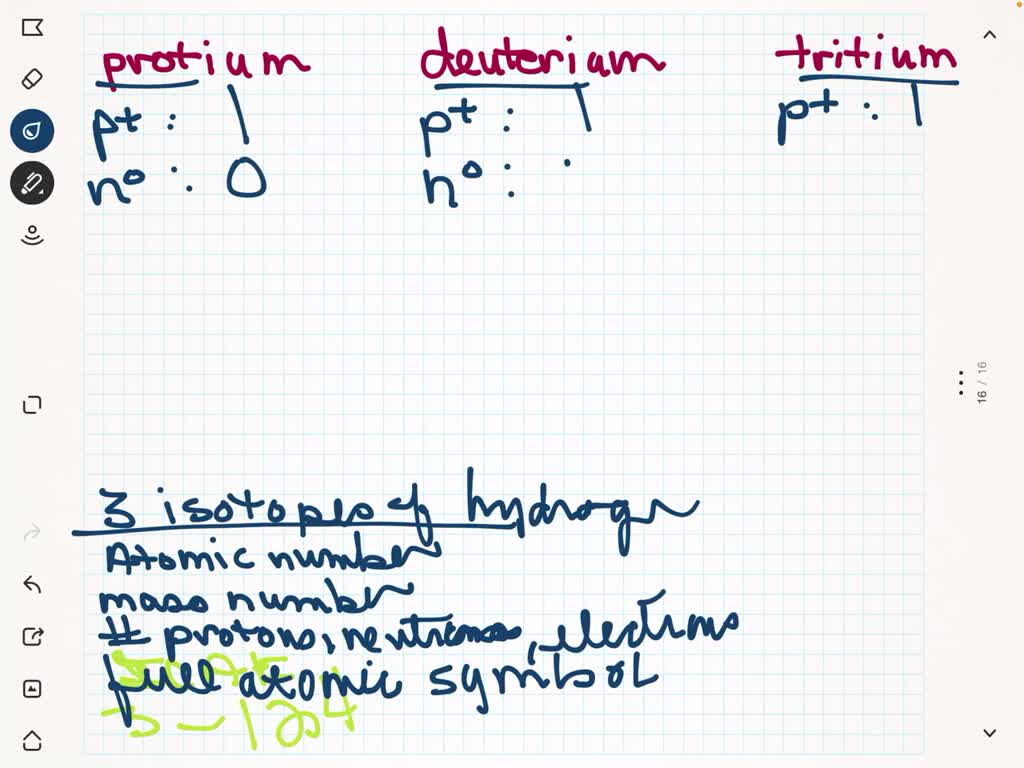 protium deuterium tritium
p+ : 1 p+ : 1 p+ : 1
n° : 0 n° :
3 isotopes of hydrogen
Atomic number
mass number
# protons, neutrons, electrons
full atomic symbol
16 / 16